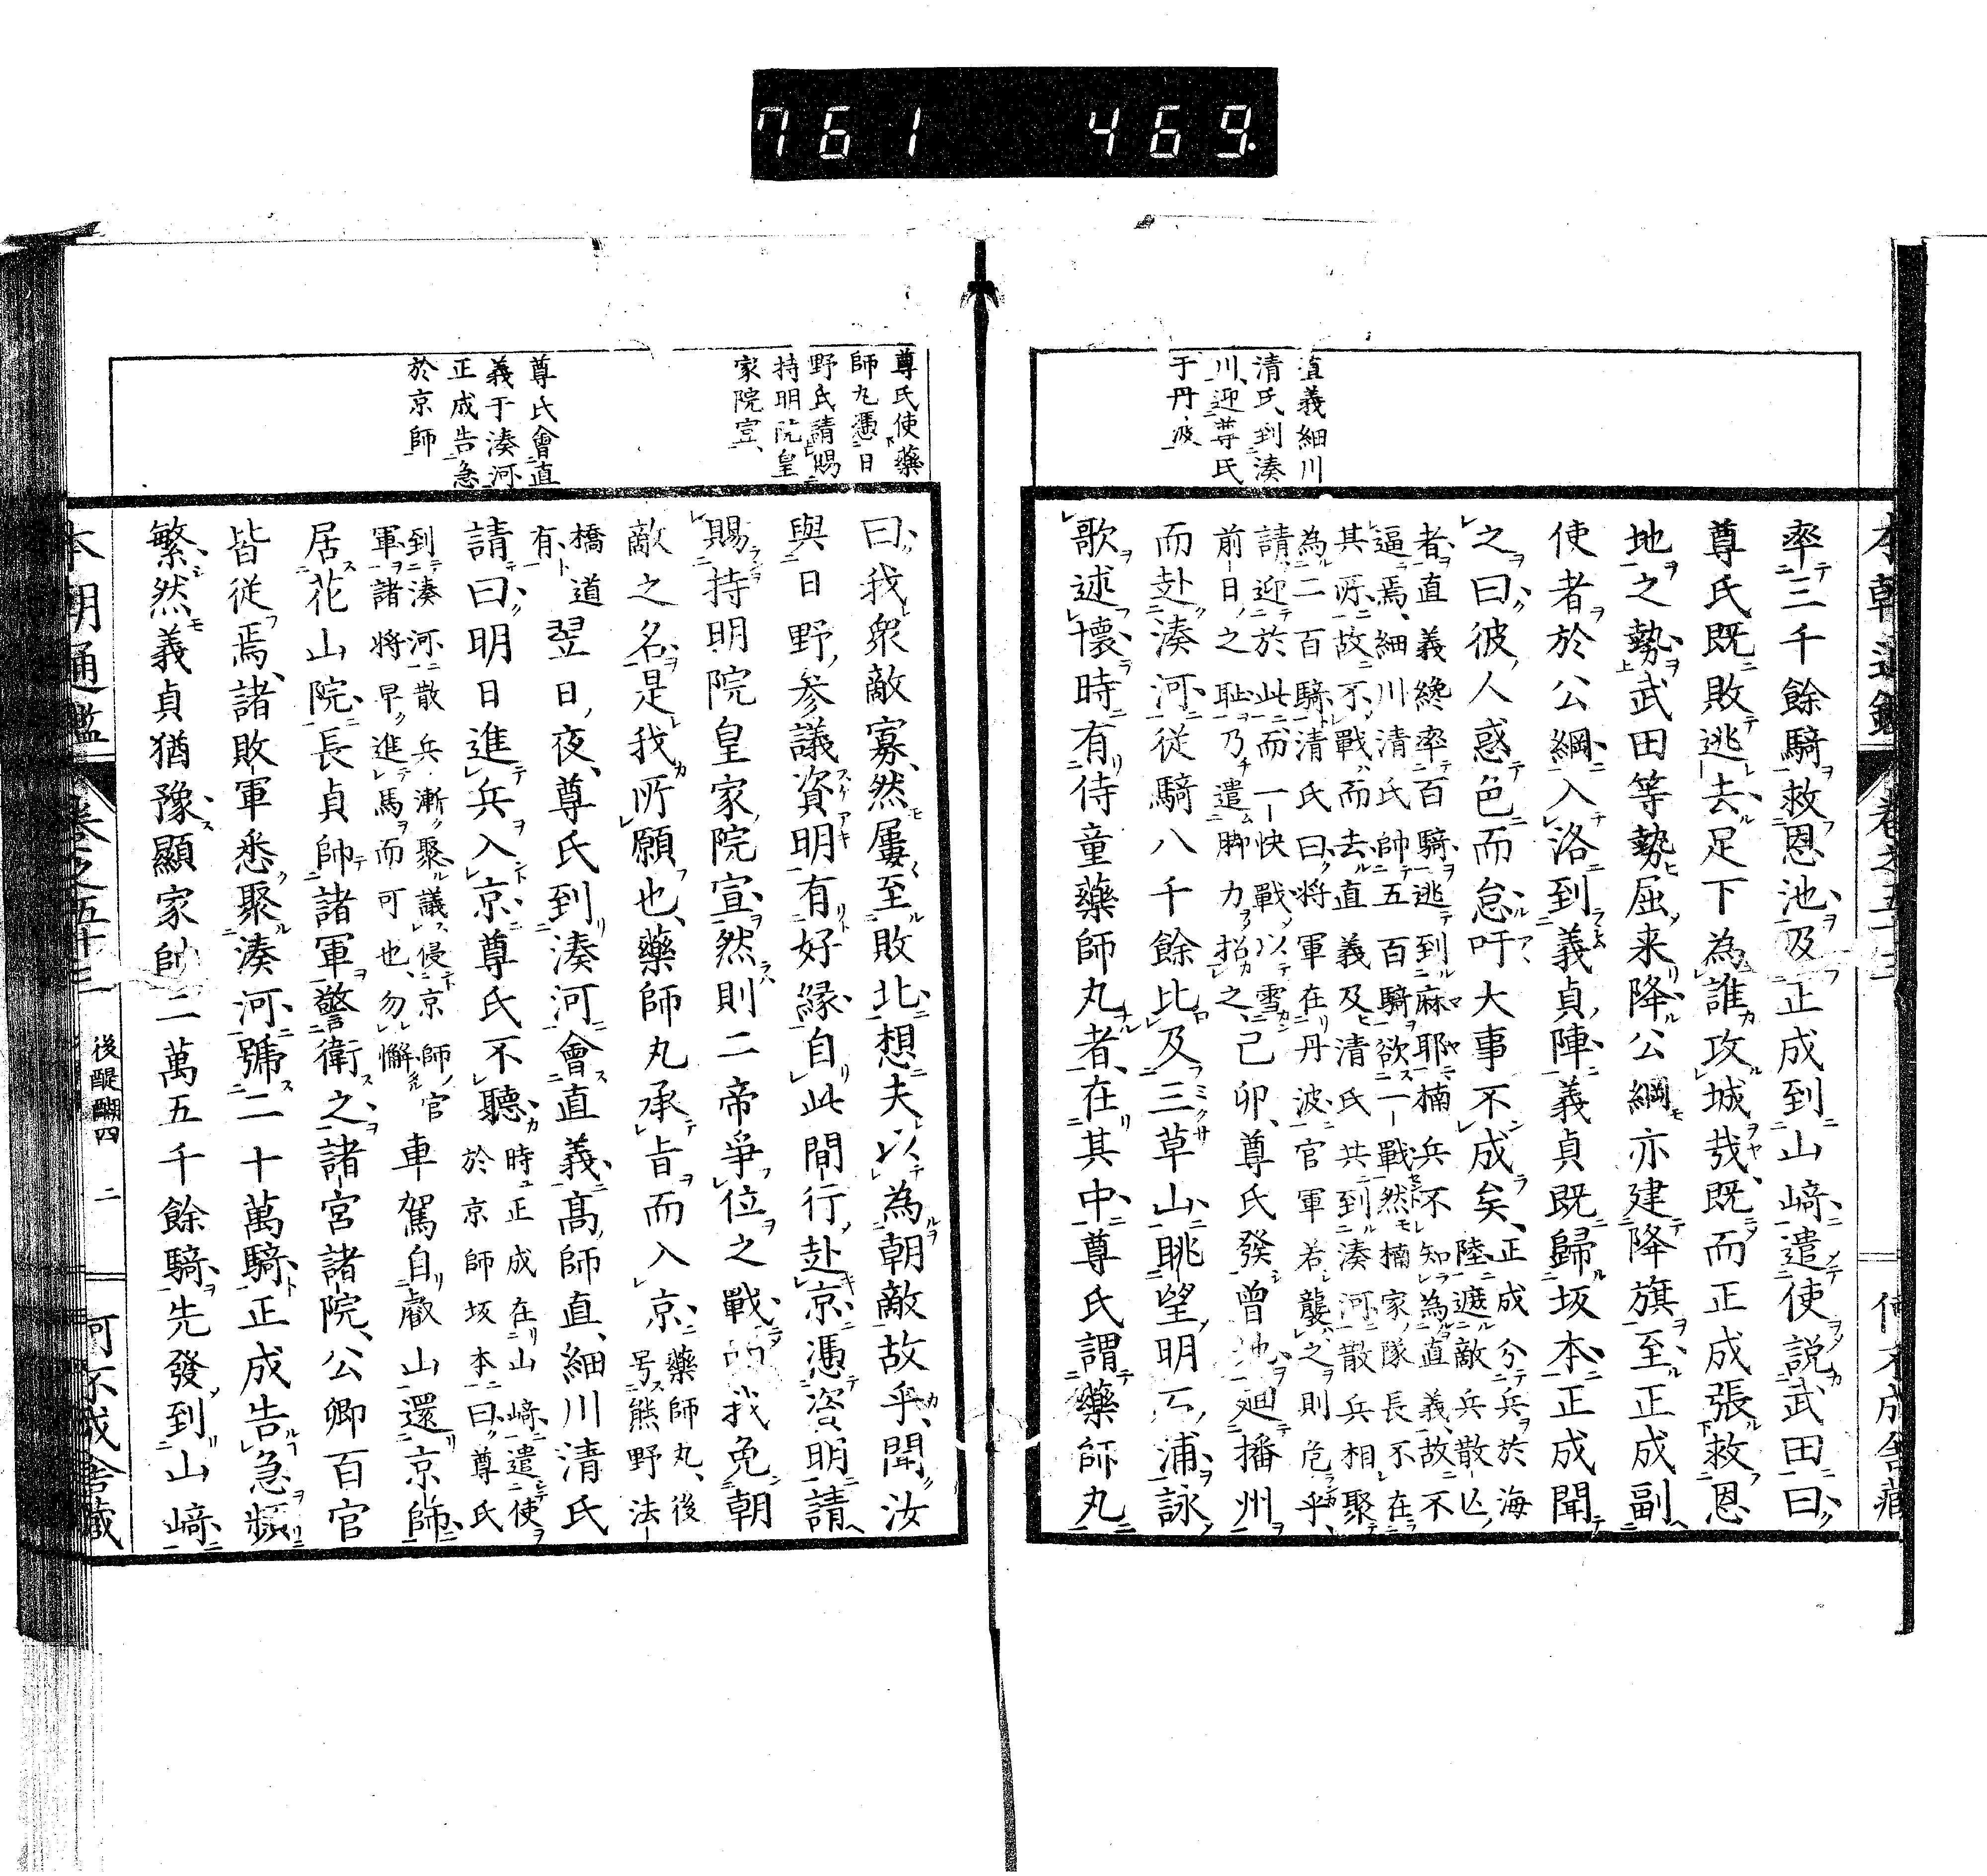 761 469
直義細川
清氏到湊
川迎尊氏
于丹波
率三千餘騎救恩池及正成到山﨑遣使説武田曰
尊氏既敗逃去足下為誰攻城哉既而正成張救恩
地之勢武田等勢屈来降公綱亦建降旗至正成副
使者於公綱入洛到義貞陣義貞既歸坂本正成聞
之曰彼人惑色而怠吁大事不成矣
正成分兵於海
陸遮敵兵散亡
者直義纔率百騎逃到麻耶楠兵不知為直義故不
逼焉細川清氏帥五百騎欲一戰然楠家隊長不在
其所故不戰而去直義及清氏共到湊河散兵相聚
為二百騎清氏曰将軍在丹波官軍若襲之則危乎
請迎於此而一快戰以雪
前日之恥乃遣脚力招之
己卯尊氏發曾地廻播州
而赴湊河従騎八千餘比及三草山眺望明石浦詠
歌述懷時有侍童藥師丸者在其中尊氏謂藥師丸
尊氏使藥
師丸憑日
野氏請賜
持明院皇
家院宣
尊氏會直
義于湊河
正成告急
於京師
曰我衆敵寡然屢至敗北想夫以為朝敵故乎聞汝
與日野参議資明有好縁自此間行赴京憑資明請
賜持明院皇家院宣然則二帝爭位之戰而我免朝
敵之名是我所願也藥師丸承旨而入京
藥師丸後
号熊野法
橋道
有
翌日夜尊氏到湊河會直義高師直細川清氏
請曰明日進兵入京尊氏不聽
時正成在山﨑遣使
於京師坂本曰尊氏
到湊河散兵漸聚議侵京師官
軍諸将早進馬而可也勿懈
車駕自叡山還京師
居花山院長貞帥諸軍警衛之諸宮諸院公卿百官
皆従焉諸敗軍悉聚湊河號二十萬騎正成告急頻
繁然義貞猶豫顯家帥二萬五千餘騎先發到山﨑
本朝通鑑 卷之五十三 後醍醐四 二